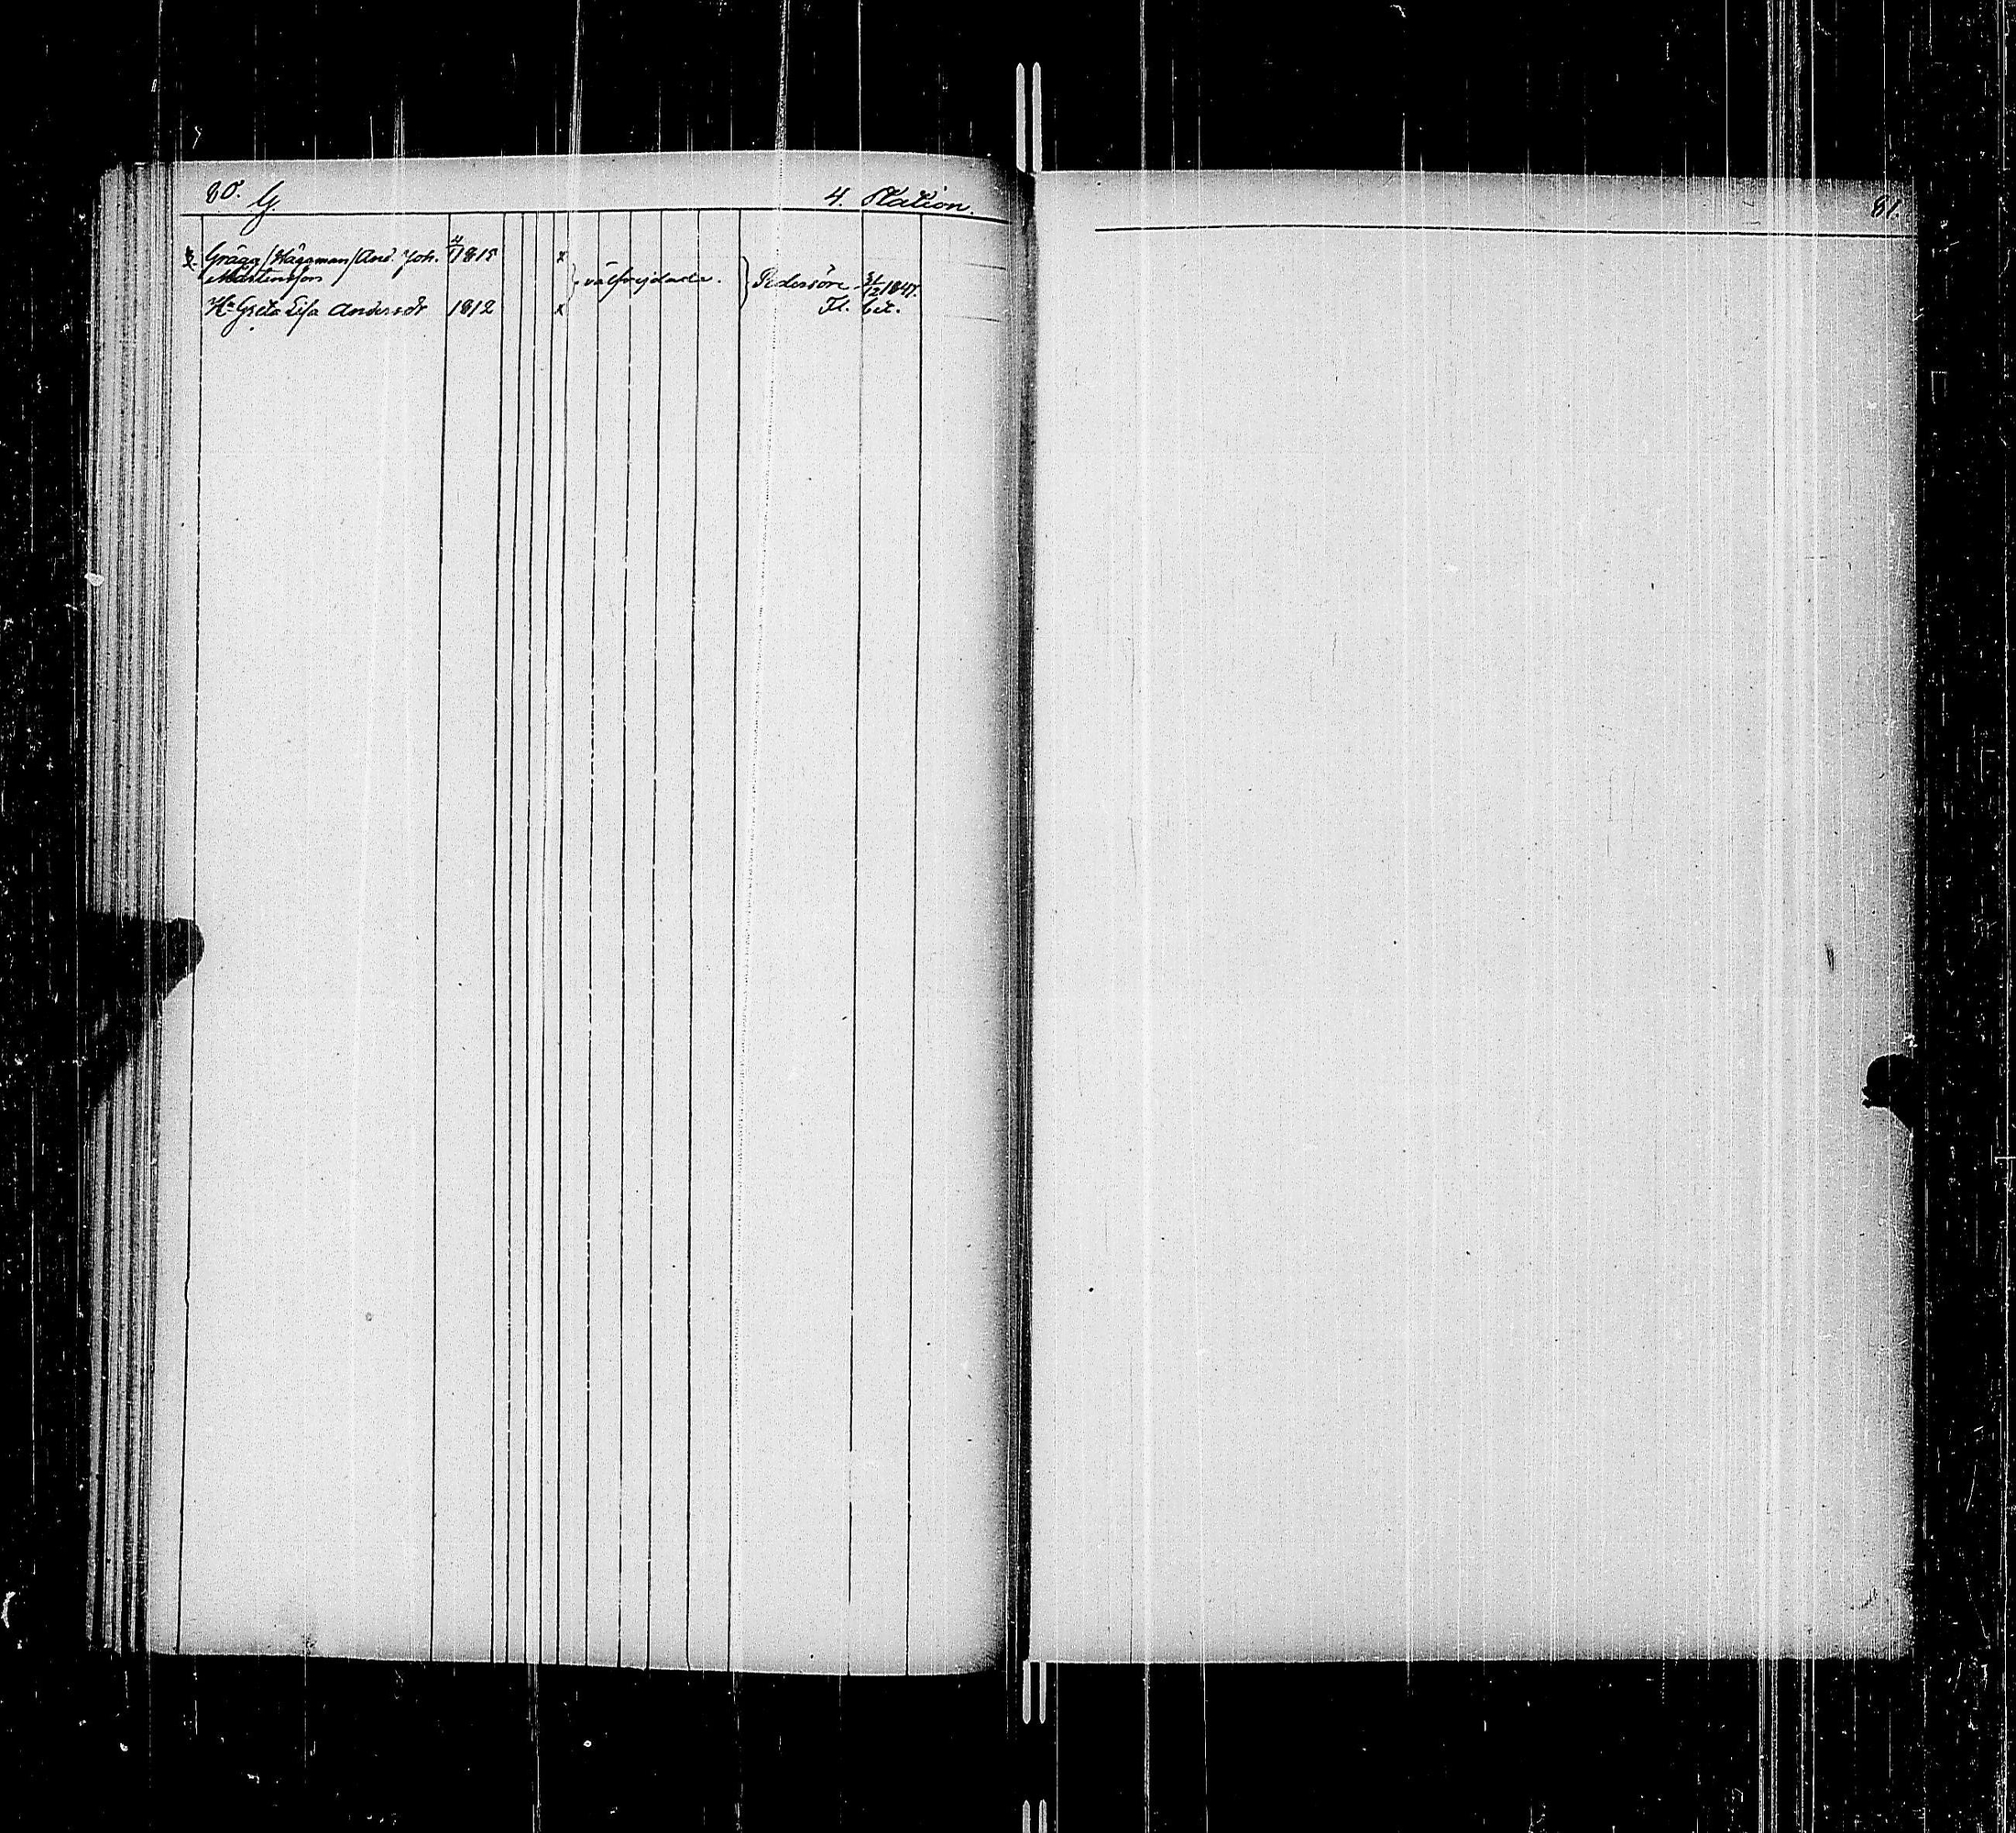 80. G. 4. Station. 81.
Grägg /Häggman/ And. Joh. 1815 x
Mårtensson
välfrejdade. Pedersöre 31/12 1847.
Hu Greta Lisa Andersdr 1812 x Fl. bet.